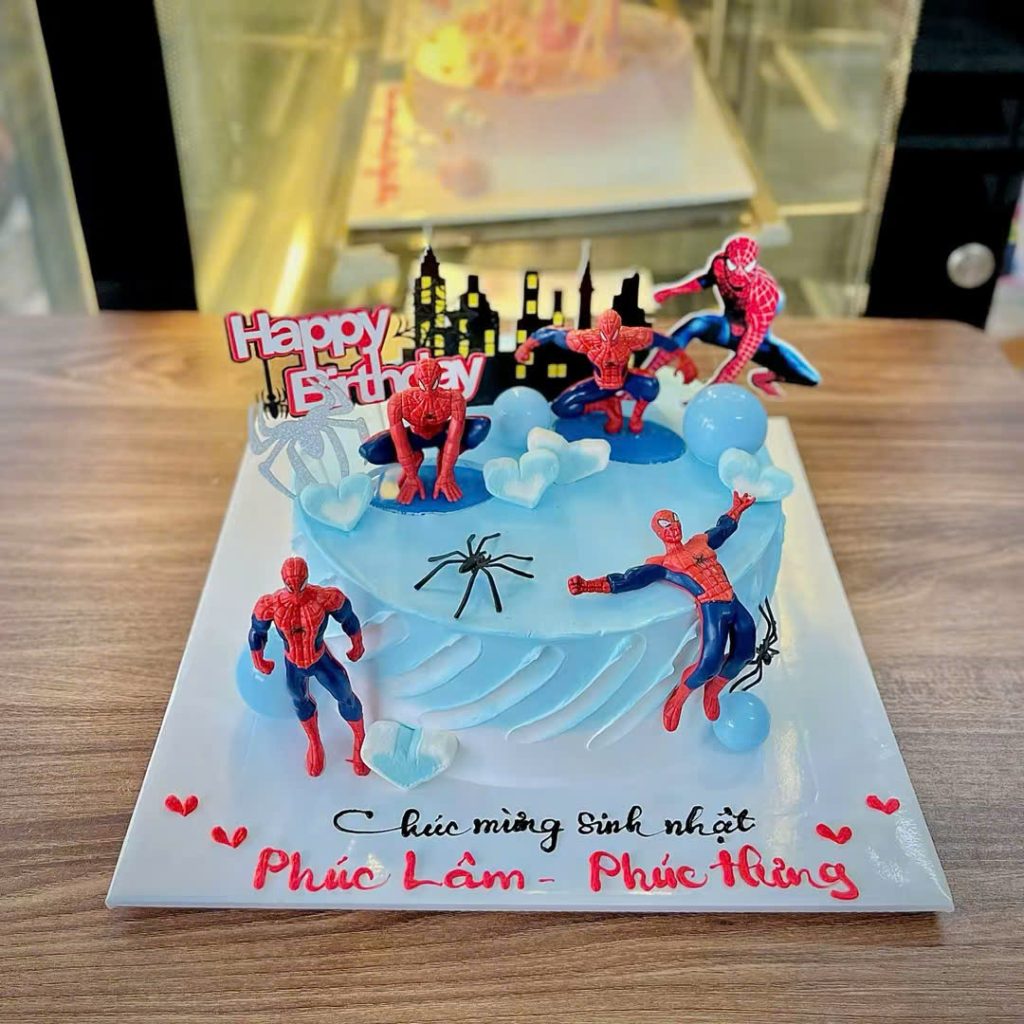 Happy
Birthday
Chúc mừng sinh nhật
Phúc Lâm - Phúc Hưng